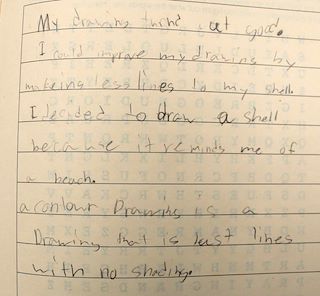 My drawing turnd out good.
I could improve my drawing by
makeing less lines to my shell.
I decided to draw a shell
because it reminds me of
a beach.
a contour Drawing is a
Drawing that is just lines
with no shading.